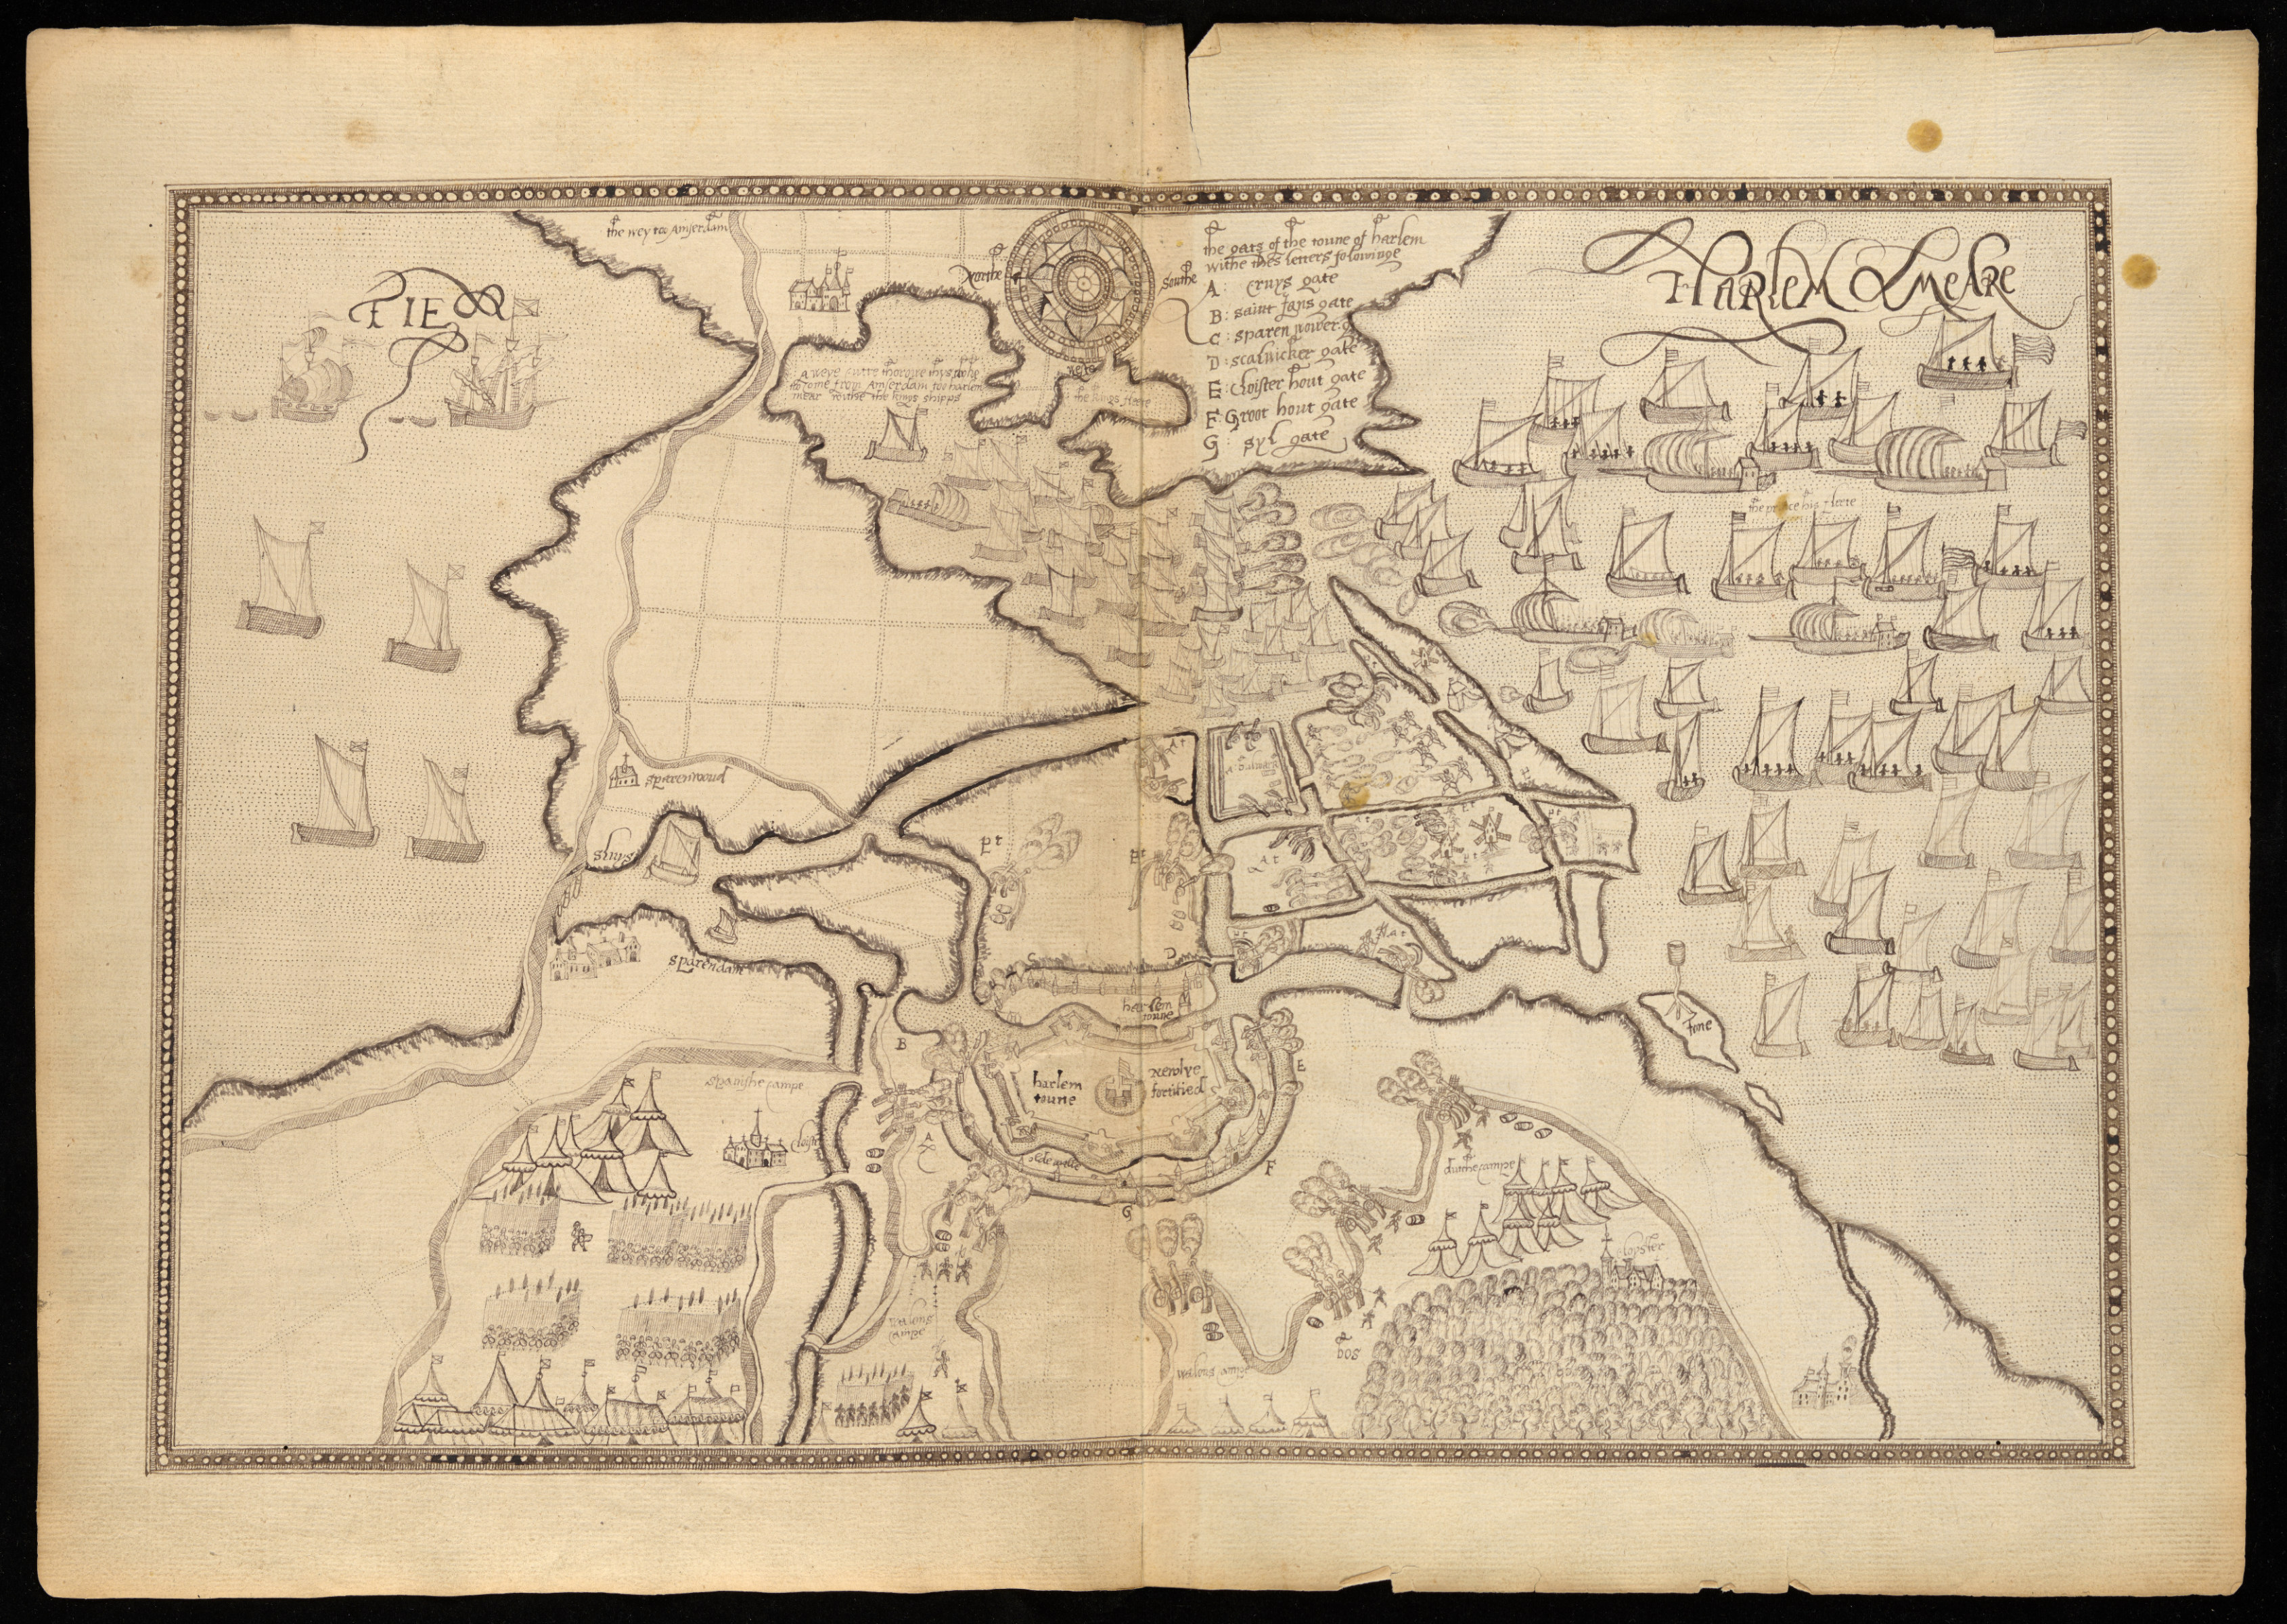 the wey too Amsterdam
TIE
Northe
Southe
the gats of the toune of harlem
withe thes letters folowinge
A: cruys gate
B: saint Jans gate
C: sparen nower g
D: scalwicker gate
E: cloister hout gate
F: Groot hout gate
G: syl gate
HARLEM MEARE
A weye cutte thorowe thys
to come from Amsterdam too harlem
mear withe the kings shipps
the kings fleete
the prince his fleete
sparenwoud
sluys
sparendam
Pt
Pt
At
C
D
harlem
toune
B
E
A
F
G
harlem
toune
newlye
fortified
olde
spanishe campe
cloister
dutche campe
cloyster
walons
campe
walons campe
bos
fine